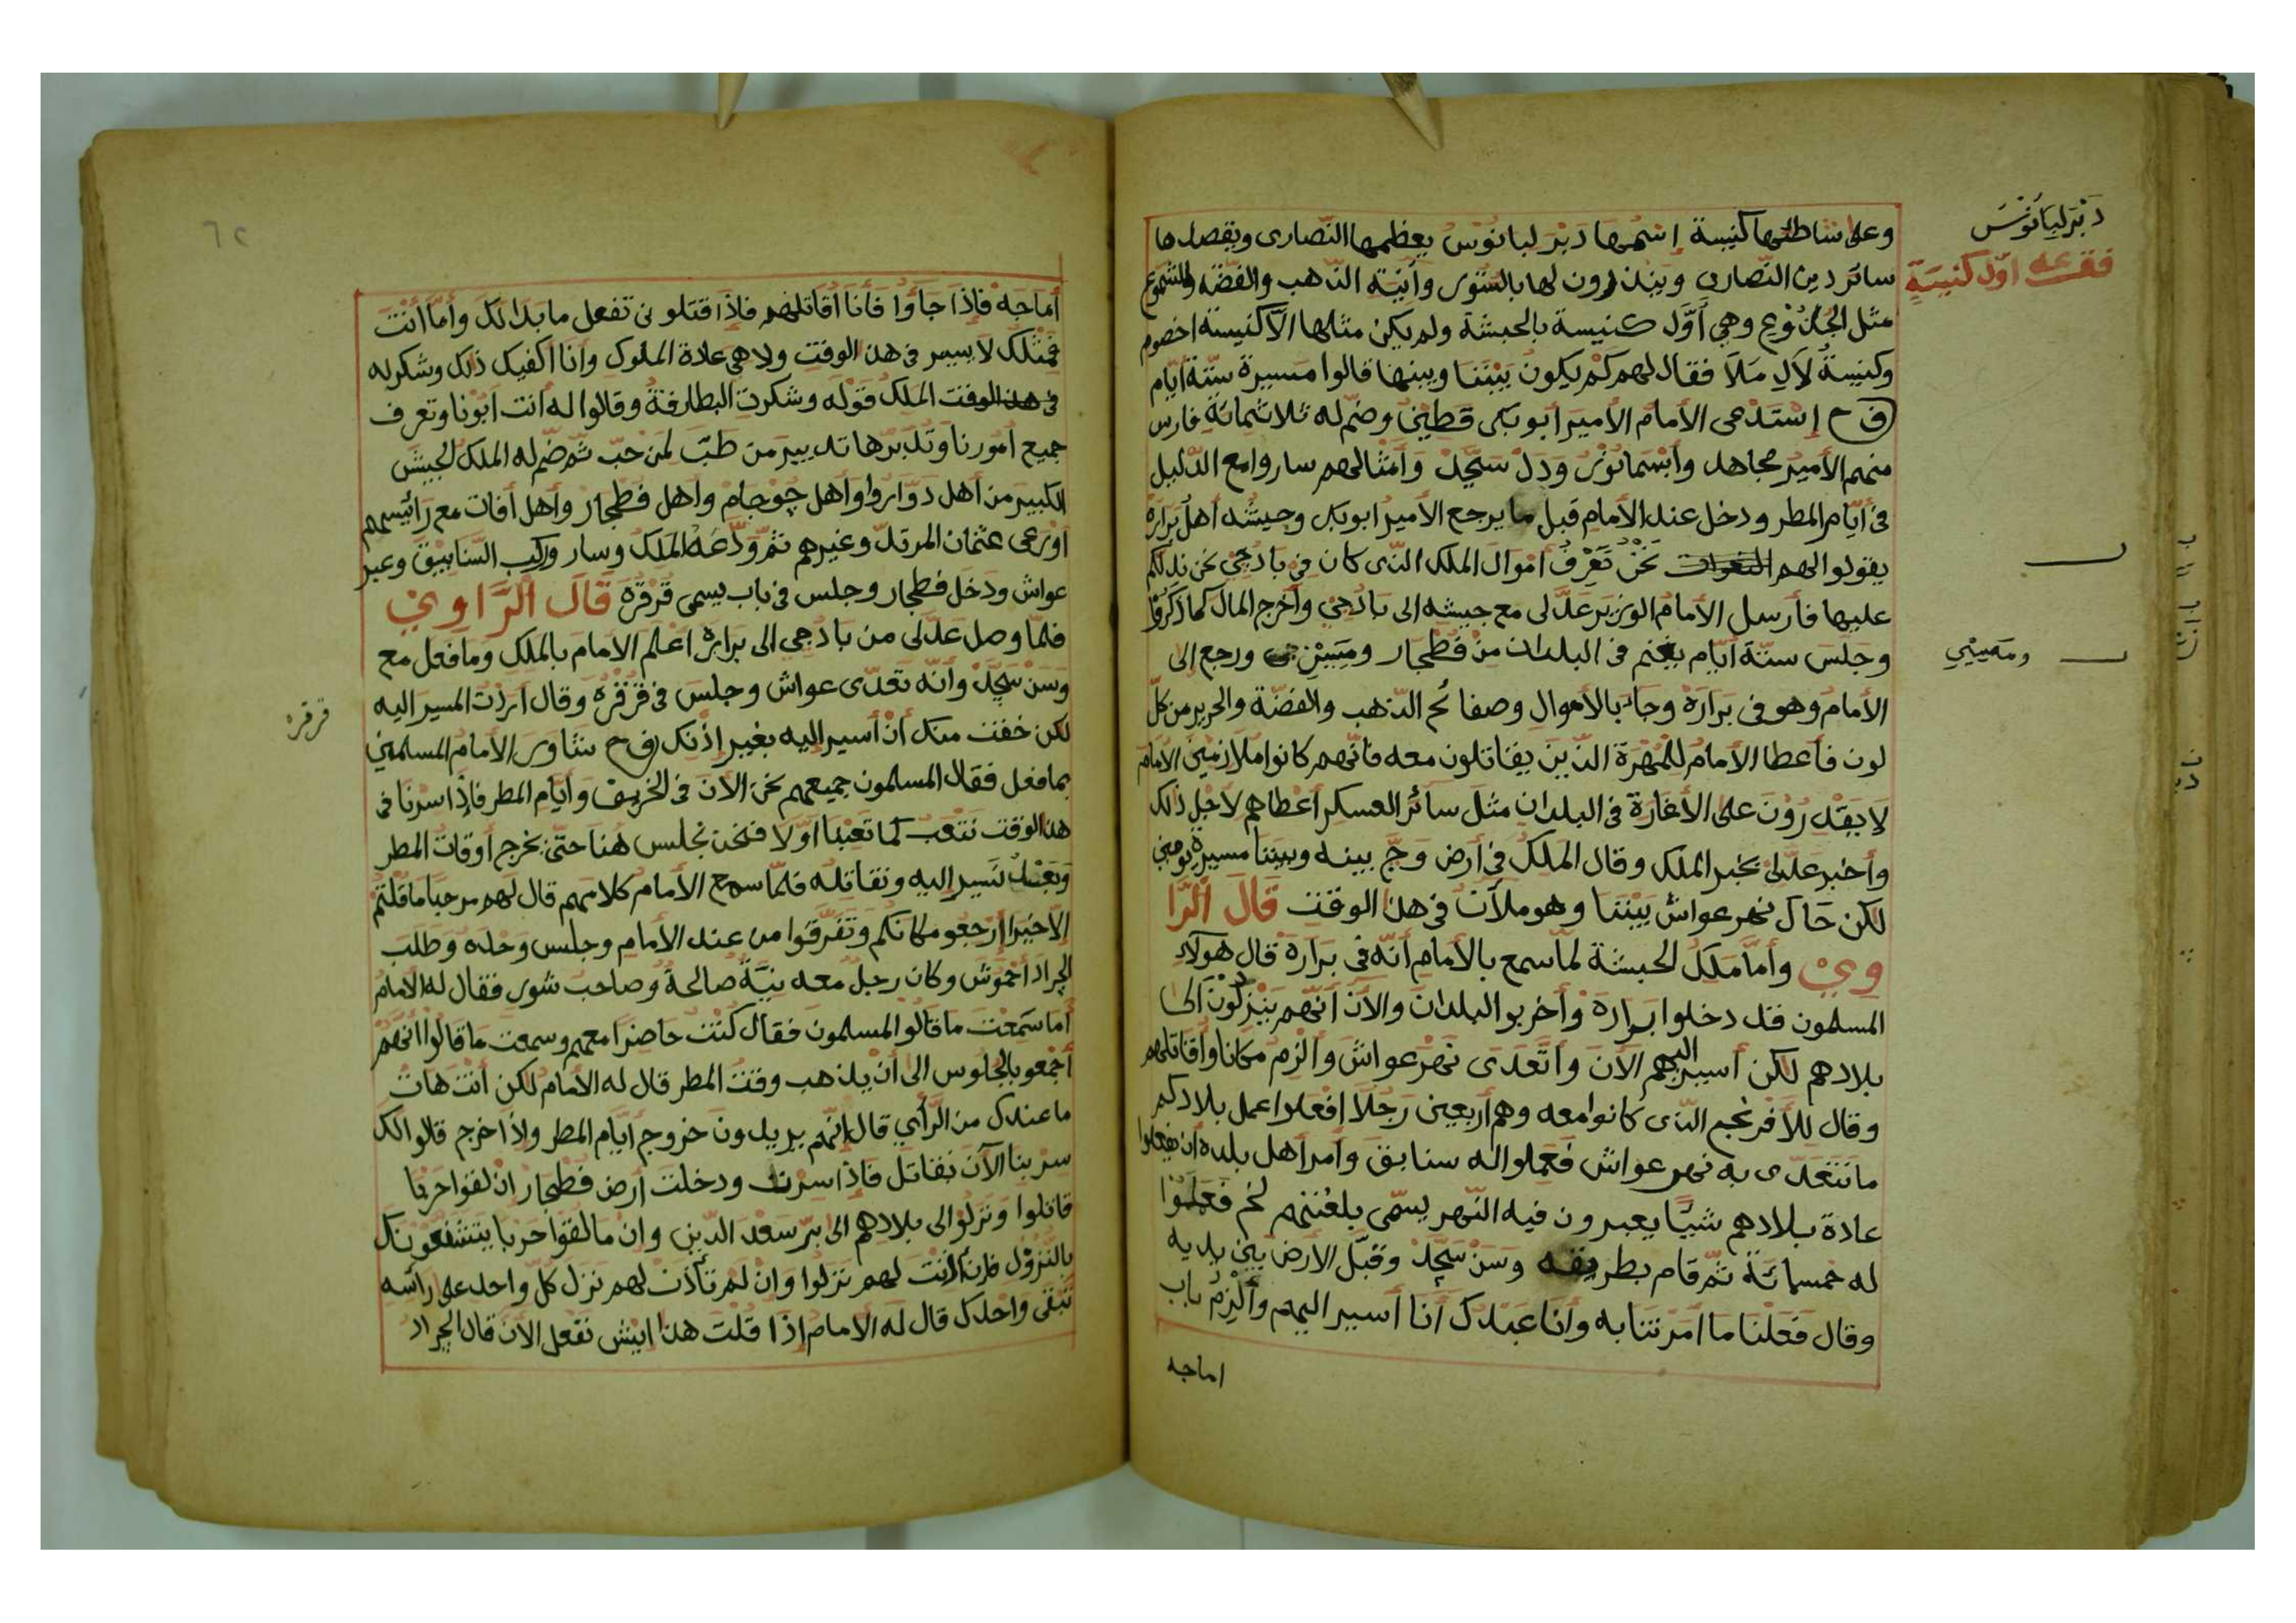 دَبْرَ لِبَانُوْسَ
فقـ عه اوّل كنيسَةٍ
وعلى شاطئها كنيسة إسْمُها دَبْرَ لبانوْسْ يعظمها النّصارى ويقصدها
سائر دين النّصارى وينذرون لها بالستوى وآنية الذهب والفضّة والشموع
مثل الجذُوْع وهي أوّل كنيسة بالحبشة ولم يكن مثلها الّا كنيسة اخصوم
وكنيسةُ لآلِ مَلَا فقال لهم كمْ يكونُ بَيْنَنا وبينها قالوا مَسيرة ستّة ايّام
ف ح إسْتَدعى الأمام الأمير ابو بكر قطين وضمّ له ثلاثمائة فارس
منهم الأمير مجاهد وأبْسَمانُوْر ودَلْ سَجَدْ وأمْثالهم ساروا مع الدّليل
فى أيّام المطر ودخل عند الأمام قبل ما يرجع الأمير ابو بكر وجيشه أهل بَرارَة
يقولوا لهم نَحْنُ نَعْرَفُ أموال الملك الّذى كان في بادجي نحن ندلكم
عليها فأرسل الأمامُ الوزير عَدَلى مع جيشه الى بادجي وأخرج المال كما ذكروْا
وجلس ستّة أيّام يغنم فى البلدان منْ فَطْجار ومَيين ورجع إلى
ومَييني
الأمام وهو فى بَرارَة وجاء بالأموال وصفائح الذهب والفضّة والحرير من كلّ
لون فأعطا الأمامُ للمُهْرَة الذّين يقاتلون معه فانّهم كانوا ملازمين الأمام
لا يَقْدِرُوْنَ على الأغارة فى البلدان مثلَ سائر العسكر أعطاهم لاجل ذلك
وأخبر عَدَلى بخبر الملك وقال الملكُ فى أرض وَجّ بينه وبيننا مسيرة يومين
لكن حَالَ نهر عواش بَيْننا وهو ملآن فى هذا الوقت قَالَ الْرَّا
وِيْ وأمّا مَلِكُ الحبشة لمّا سمع بالأمام أنّه فى بَرارَة قال هولاء
المسلمون قد دخلوا بَرارَة وأخربوا البلدان والآن أنّهم يَنْزلُوْنَ الى
بلادهم لكن أسير اليهم الآن واتَعَدى نهر عواش والزم مكانا وأقاتلهم
وقال للأفرنجيم الّذى كانوا معه وهم أربعين رَجُلًا افعلوا عمل بلادكم
ما نتعدّى به نهر عواش فعملوا له سنابق وأمر أهل بلده ان يفعلوا
عادة بلادهم شيئًا يعبرون فيه النّهر يسمّى بلغتهم لخم فَعَمَلُوْا
له خمسمائة ثمّ قام بطريقه وسَنْ سَجَدْ وقبّل الارض بين يديه
وقال فَعَلْنا ما امَرتنا به وأنا عَبْدُكَ أنا أسير اليهم وأَلْزِمُ باب
اماجه
٦٢
أماجَهْ فإذا جَاؤا فَأنا أقاتلهم فإذا قتلونى تفعل ما بدا لك وأمّا أنْتَ
فمثْلُك لا يسير فى هذا الوقت ولا هى عادة الملوك وأنا اكفيك ذلك وشكر له
فى هذا الوقت الملكُ قوْله وشكرت البطارقة وقالوا له أنت ابونا وتعرف
جميع امُورنا وتُدبّرها تدبير مَن طَبّ لمَن حَبّ ثمّ ضمّ له الملك الجيشَ
الكبير من أهل دَوّاروا وأهل جوْجامْ واهل فَطَجارْ وأهل أفات مع رَائيسهم
اوْرعى عثمان المرتدّ وغيرهم ثمّ ودَّعَهُ الملك وسار وركب السّنابيق وعبر
عواش ودَخل فطجار وجلس فى باب يسمى قَرْقَرَة قَالَ الْرَّاوِيْ
فلمّا وصل عَدَلى من بادجى الى برارَة اعْلم الامامَ بالملك وما فعل مع
وَسَنْ سَجَدْ وأنّه تَعدّى عواش وجلس فى قَرْقرَه وقال أرَدْتُ المسير اليه
قرقره
لكن خفْت منك أنْ أسير إليه بغير إذْنك ف ح شاور الأمام المسلمين
بما فعل فقال المسلمون جميعهم نحن الآن فى الخريف وأيام المطر فإذا سرْنا فى
هذا الوقت نتعب كما تعبْنا أوّلا فنحن نجلس هُنا حتّى يخرج أوقاتُ المطر
وبَعْدُ نَسير إليه ونقاتله فلمّا سمع الأمامُ كلامهم قال لهم مرحبًا ما قلتم
إلّا خَيْرا إرْجعُو مكانكم وتَفَرَّقوا من عند الأمام وجلس وحده وطَلَب
الجراد أحْمُوْش وكان رجلٌ معه نيَّةٌ صالحةٌ وصاحب شورى فقال له الأمامُ
أما سَمعْت ما قالُو المسلمون فقال كنْتُ حاضِرًا معهم وسمعت ما قالوا انّهُمْ
أجْمَعو بالجلوس الى أنْ يذهب وقت المطر قال له الأمامُ لكن أنْت هاتْ
ما عندك من الرأي قال إنّهم يريدون خروج أيّام المطر وإذا خرج قالوا لك
سرْ بنا الآن نقاتل فإذا سرْت ودخلت أرض فطجار انْ لقوا حَرْبا
قاتلوا ونَزلُوْا الى بلادهم الى برّ سَعْد الدّين وان ما لقوا حَربا يَتشفّعُوْنك
بالنّزوْل فان أذنْتَ لهم نزلوا وانْ لمْ تَأذَن لهم نزل كلّ واحد على رأسه
تَبْقى واحدك قال له الامام إذا قُلْتَ هذا ايش نفعل الآن قال الجراد